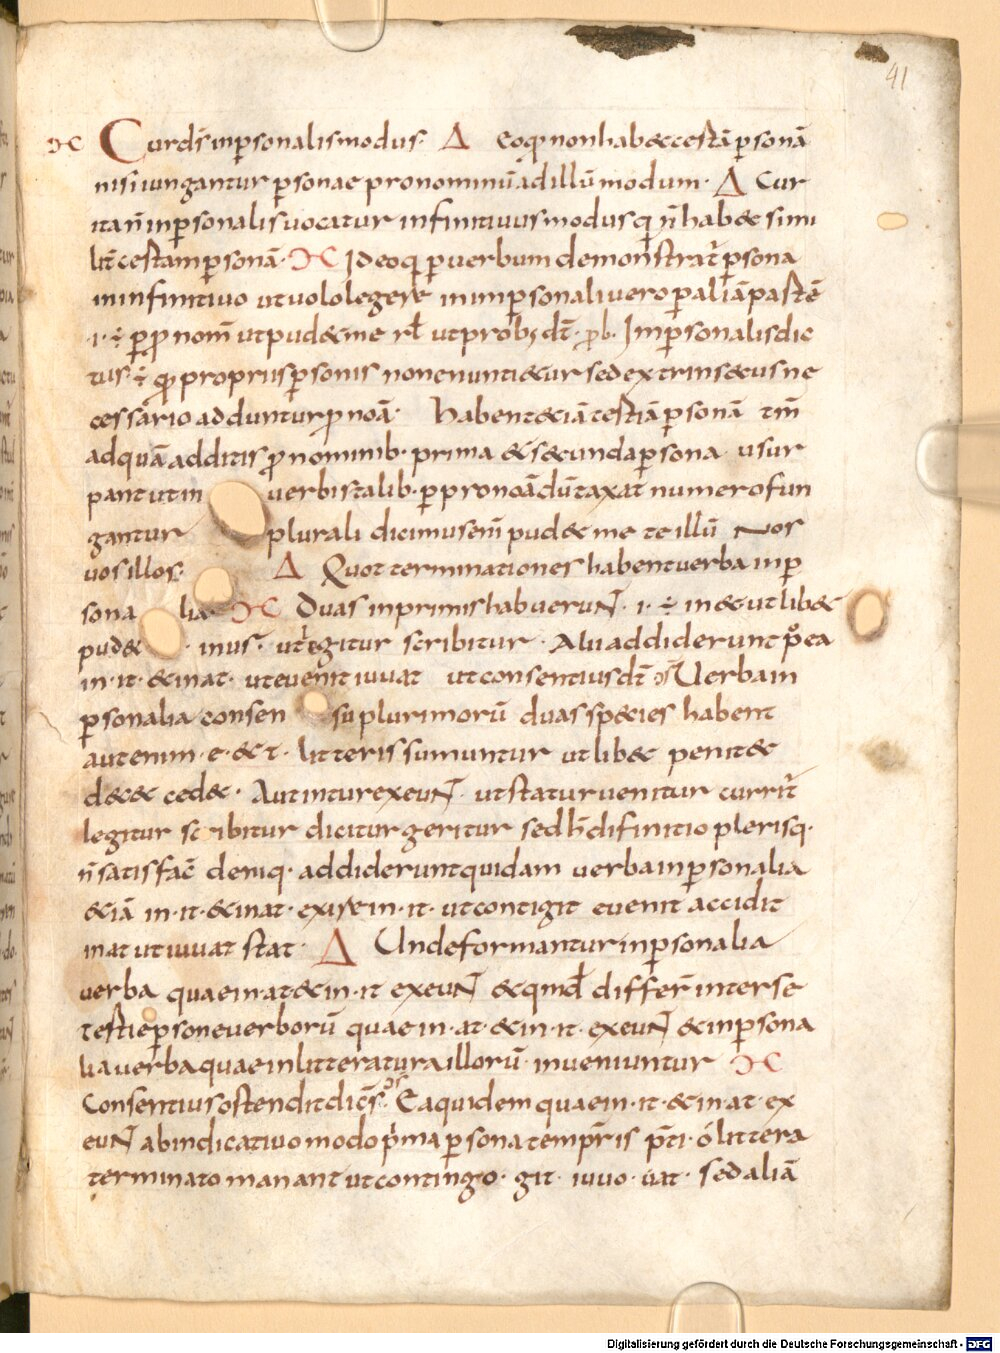 41
ƆC Cur dr̄ inp̱sonalis modus· Δ eo qđ non hab& certā p̱sonā
nisi iungantur p̱sonae pronominū ad illū modum· Δ Cur
ita n̄ inp̱sonalis vocatur infinitivus modus qui n̄ hab& simi
lit̄ certam p̱sonā· ƆC Ideo q p̱ verbum demonstrat̄ p̱sona
in infinitivo ut volo legere in inp̱sonali vero p̱ aliā partē
·i· ÷ p̱ p̱nom̄ ut pud& me ut prob; dt̄· prob· Imp̱sonalis dic
tus· ÷ quia propriis p̱sonis non enunti&ur sed extrinsecus ne
cessario adduntur p̱noā· Habent &iā tertiā p̱sonā tm̄
ad quā additis p̱nominib· prima & secunda p̱sona usur
pant ut in verbis talib· p̱ pronoā dūtaxat numero fun
gantur plurali dicimus enī pud& me te illū Nos
vos illos· Δ Quot terminationes habent verba inp̱
sona lia ƆC Duas inprimis habuerūt ·i· ÷ in & & ut lib&
pud& inus· ut legitur scribitur· Alii addiderunt postea
in·it· & in at· ut evenit iuvat ut consentius dt̄ Verba in
p̱sonalia consen su plurimorū duas species habent
aut enim ·e· & ·t· litteris sumuntur ut lib& penit&
dec& ced&· Aut in tur exeuN̄t· ut statur venitur currit̄
legitur sc ribitur dicitur geritur sed h̄ difinitio plerisq·
n̄ satisfac̄ deniq· addiderunt quidam verba inp̱sonalia
&iā in·it· & in at· exire in·it· ut contigit evenit accidit
in at ut iuvat stat· Δ Unde formantur inp̱sonalia
verba quae in·at & in·it exeuN̄t & quid differ̄ inter se
tertie p̱sone verborū quae in·at· & in·it· exeuN̄t & inp̱sona
lia verba quae in litteratura illorū inveniuntur ƆC
Consentius ostendit dicēs· Ea quidem quae in·it· & in·at· ex
euN̄t ab indicativo modo prima p̱sona tempris p̄ti· ō littera
terminato manant ut contingo· git· iuvo· vat· sed aliā
Digitalisierung gefördert durch die Deutsche Forschungsgemeinschaft - DFG